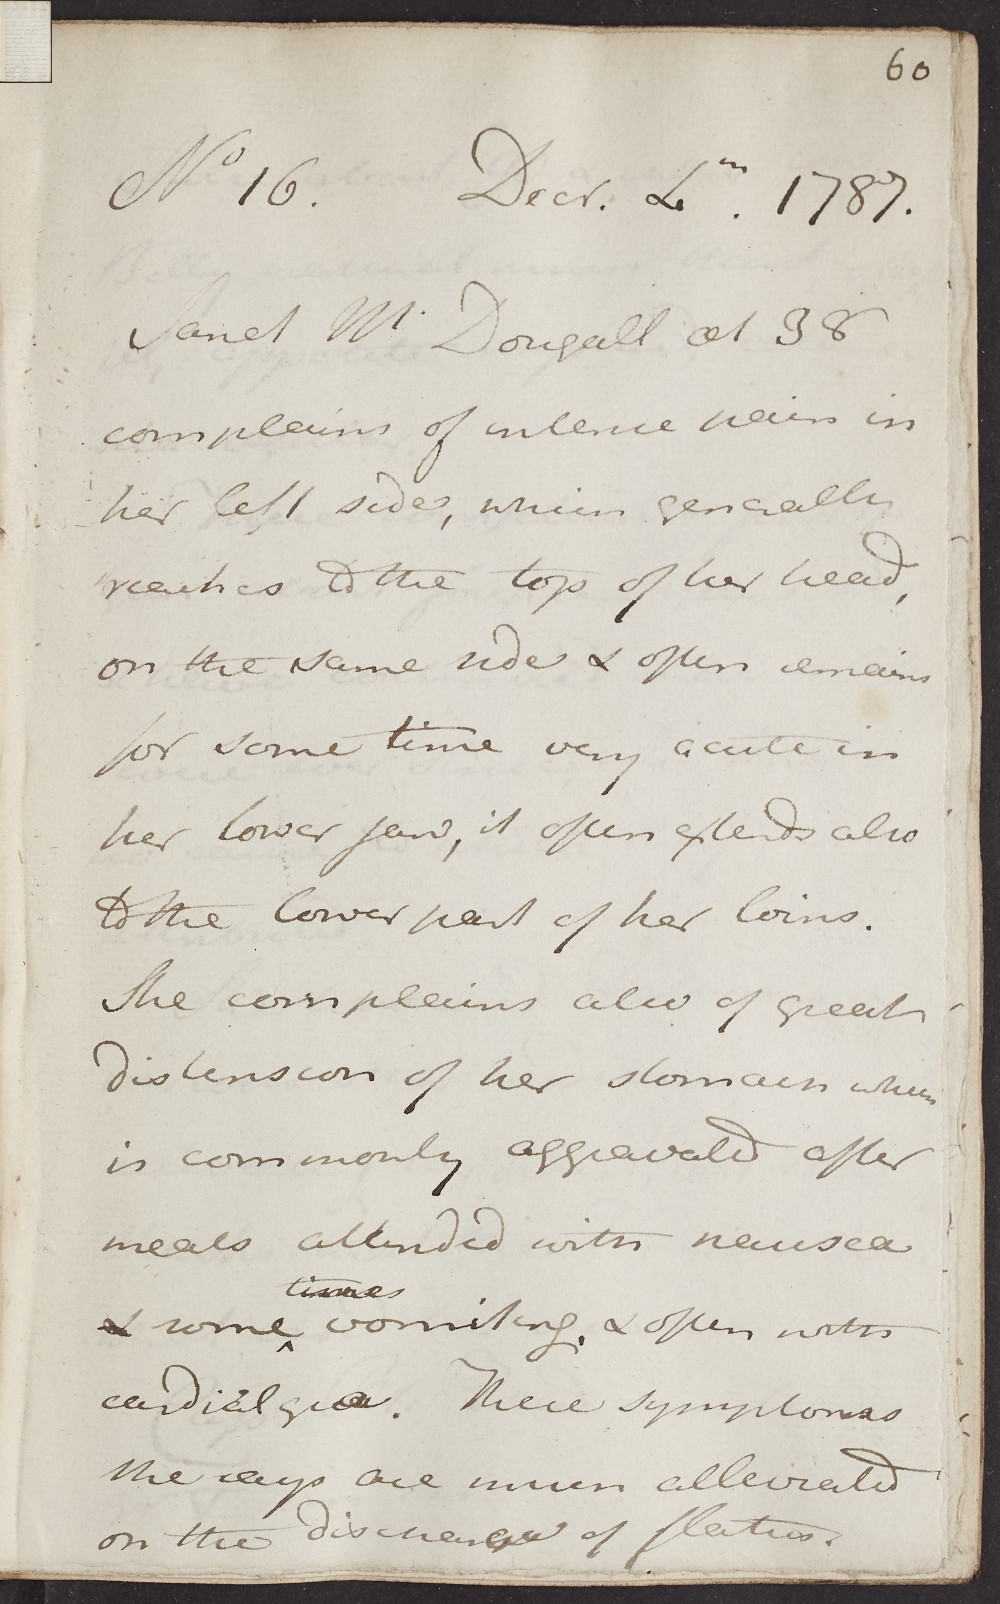 60
No 16. Decr. 4th. 1787.
Janet Mc. Dougall æt 38
complains of intense pain in
her left side, which generally
reaches to the top of her head,
on the same side & often remains
for some time very acute in
her lower jaw, it often extends also
to the lower part of her loins.
She complains also of great
distension of her stomach which
is commonly aggravated after
meals attended with nausea
times
& some^ vomiting, & often with
cardialgia. These symptoms
she says are much alleviated
on the discharge of flatus.